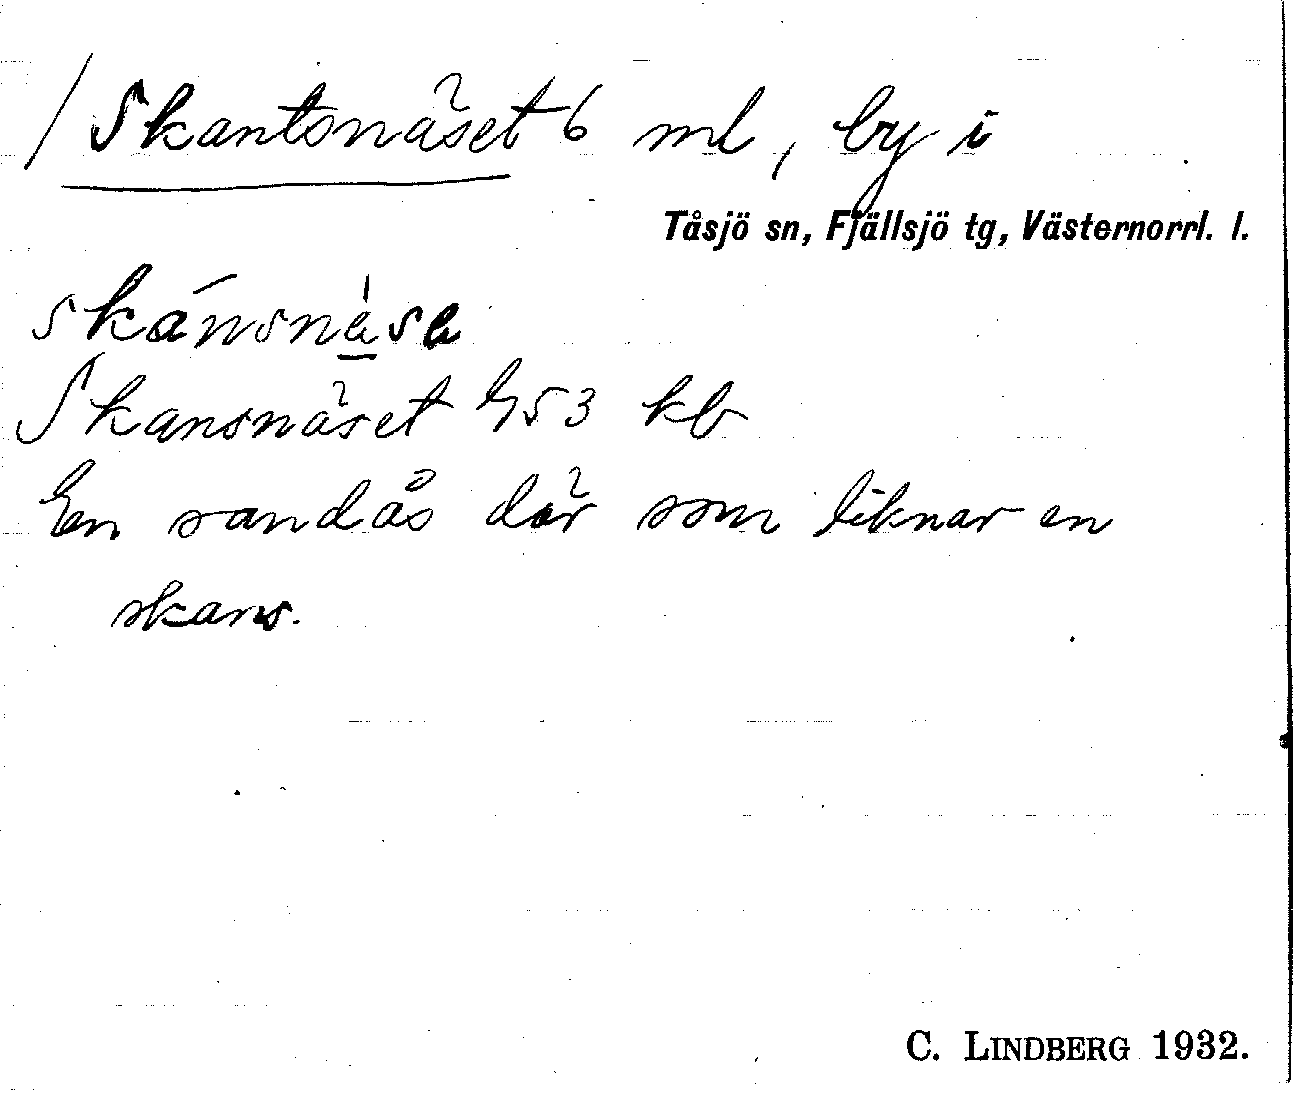 / Skantsnäset 6 ml, by i
Tåsjö sn, Fjällsjö tg, Västernorrl. l.
Skansnäset 453 kb
En sandås där som liknar en
skans.
C. LINDBERG 1932.